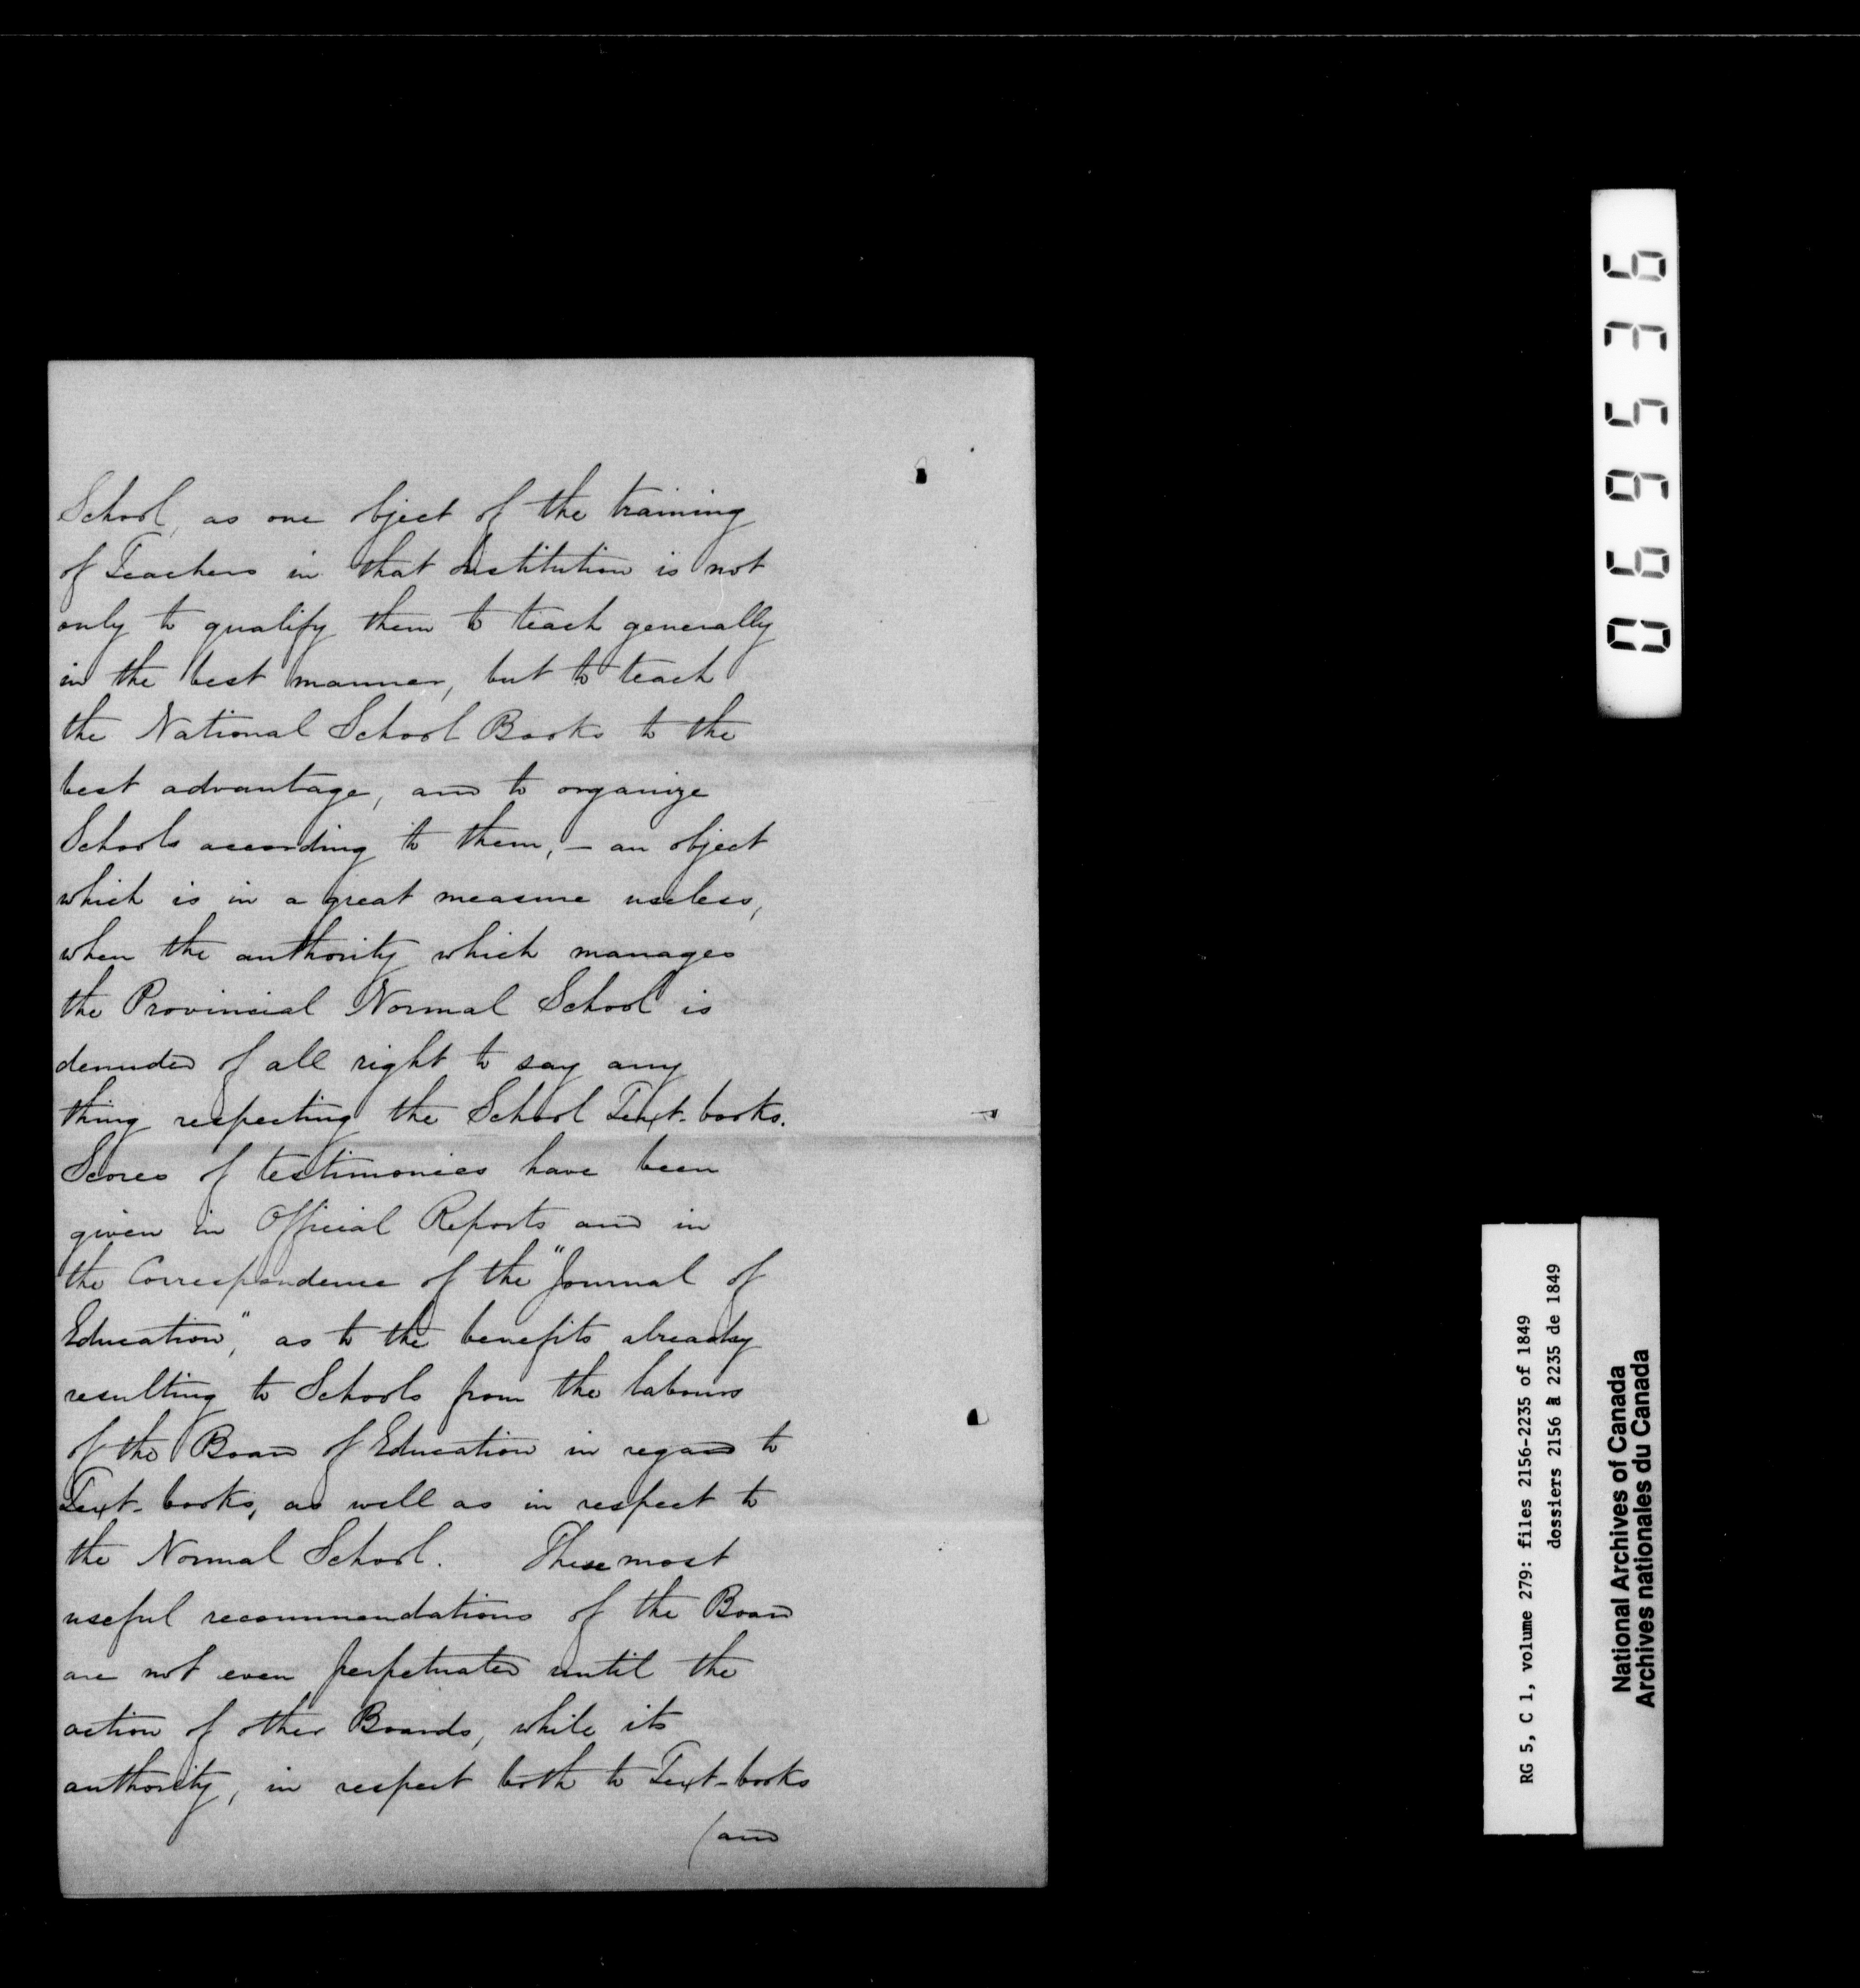 School, as one object of the training
of Teachers in that Institution is not
only to qualify them to teach generally
in the best manner, but to teach
the National School Books to the
best advantage, and to organize
Schools according to them, – an object
which is in a great measure useless,
when the authority which manages
the Provincial Normal School is
denuded of all right to say any
thing respecting the School Text-books.
Scores of testimonies have been
given in Official Reports and in
the Correspondence of the "Journal of
Education", as to the benefits already
resulting to Schools from the labours
of the Board of Education in regard to
Text-books, as well as in respect to
the Normal School. These most
useful recommendations of the Board
are not even perpetuated until the
action of other Boards, while its
authority, in respect both to Text-books
(and
069536
RG 5, C 1, volume 279: files 2156-2235 of 1849
dossiers 2156 à 2235 de 1849
National Archives of Canada
Archives nationales du Canada